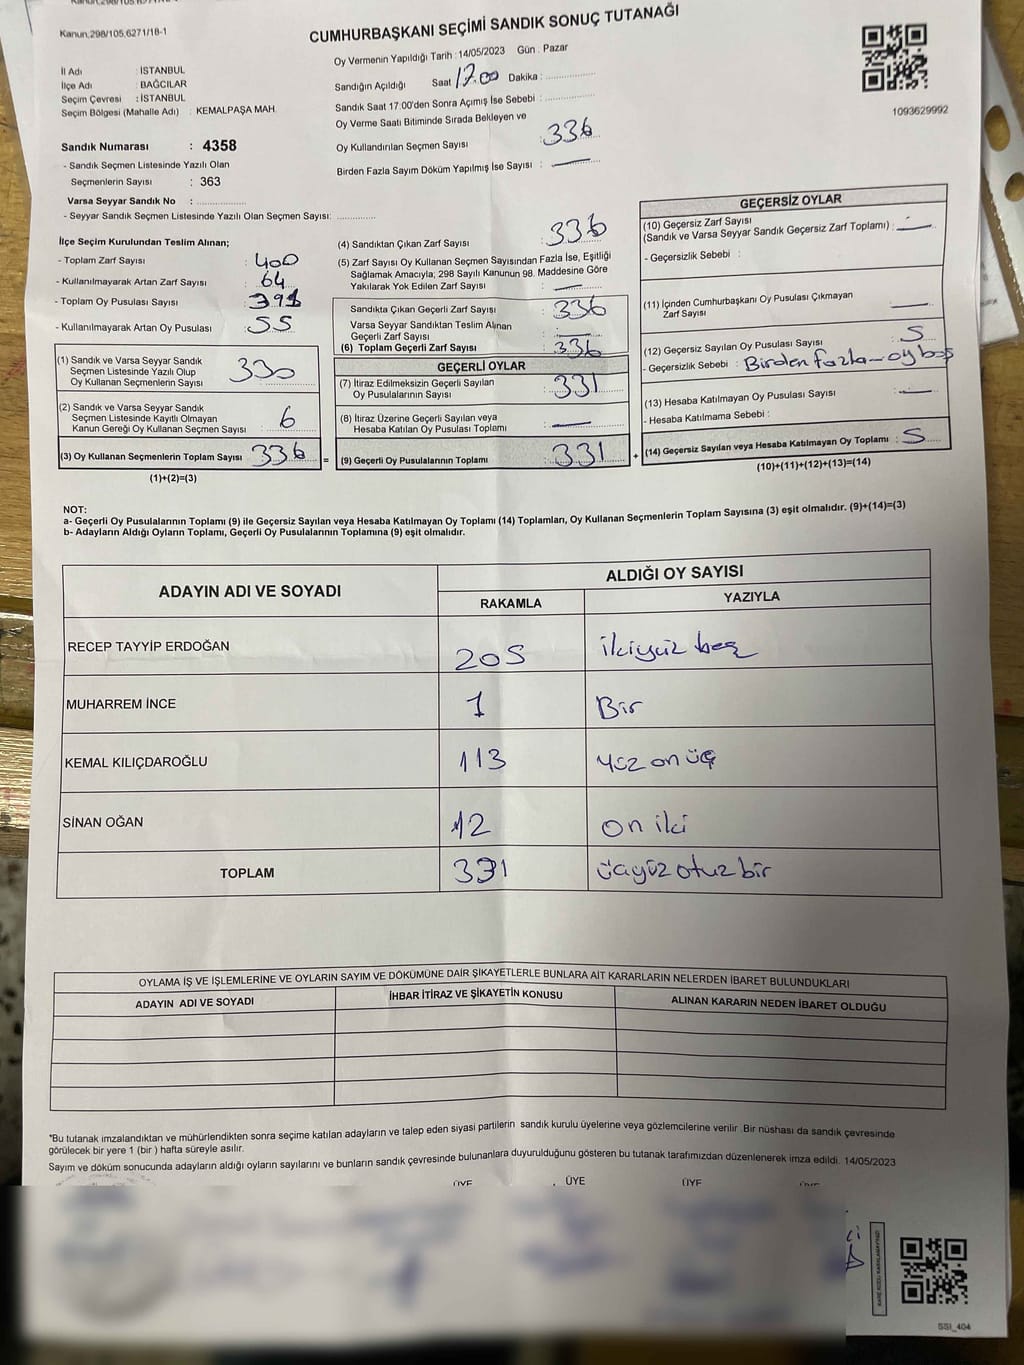 Kanun.298/105,6271/18-1
CUMHURBAŞKANI SEÇİMİ SANDIK SONUÇ TUTANAĞI
İl Adı : İSTANBUL
İlçe Adı : BAĞCILAR
Seçim Çevresi : İSTANBUL
Seçim Bölgesi (Mahalle Adı) : KEMALPAŞA MAH.
Sandık Numarası : 4358
- Sandık Seçmen Listesinde Yazılı Olan
Seçmenlerin Sayısı : 363
Varsa Seyyar Sandık No :
- Seyyar Sandık Seçmen Listesinde Yazılı Olan Seçmen Sayısı:
Oy Vermenin Yapıldığı Tarih : 14/05/2023 Gün : Pazar
Sandığın Açıldığı Saat 17.00 Dakika :
Sandık Saat 17:00'den Sonra Açımış İse Sebebi :
Oy Verme Saati Bitiminde Sırada Bekleyen ve
Oy Kullandırılan Seçmen Sayısı : 336
Birden Fazla Sayım Döküm Yapılmış İse Sayısı : —
1093629992
İlçe Seçim Kurulundan Teslim Alınan;
- Toplam Zarf Sayısı : 400
- Kullanılmayarak Artan Zarf Sayısı : 64
- Toplam Oy Pusulası Sayısı : 391
- Kullanılmayarak Artan Oy Pusulası : 55
(1) Sandık ve Varsa Seyyar Sandık
Seçmen Listesinde Yazılı Olup
Oy Kullanan Seçmenlerin Sayısı 330
(2) Sandık ve Varsa Seyyar Sandık
Seçmen Listesinde Kayıtlı Olmayan
Kanun Gereği Oy Kullanan Seçmen Sayısı : 6
(3) Oy Kullanan Seçmenlerin Toplam Sayısı 336 =
(1)+(2)=(3)
(4) Sandıktan Çıkan Zarf Sayısı : 336
(5) Zarf Sayısı Oy Kullanan Seçmen Sayısından Fazla İse, Eşitliği
Sağlamak Amacıyla; 298 Sayılı Kanunun 98. Maddesine Göre
Yakılarak Yok Edilen Zarf Sayısı : —
Sandıkta Çıkan Geçerli Zarf Sayısı : 336
Varsa Seyyar Sandıktan Teslim Alınan
Geçerli Zarf Sayısı : —
(6) Toplam Geçerli Zarf Sayısı : 336
GEÇERLİ OYLAR
(7) İtiraz Edilmeksizin Geçerli Sayılan
Oy Pusulasının Sayısı : 331
(8) İtiraz Üzerine Geçerli Sayılan veya
Hesaba Katılan Oy Pusulası Toplamı : —
(9) Geçerli Oy Pusulalarının Toplamı : 331 +
GEÇERSİZ OYLAR
(10) Geçersiz Zarf Sayısı
(Sandık ve Varsa Seyyar Sandık Geçersiz Zarf Toplamı) : —
- Geçersizlik Sebebi :
(11) İçinden Cumhurbaşkanı Oy Pusulası Çıkmayan
Zarf Sayısı —
(12) Geçersiz Sayılan Oy Pusulası Sayısı : 5
- Geçersizlik Sebebi : Birden fazla oy bas
(13) Hesaba Katılmayan Oy Pusulası Sayısı : —
- Hesaba Katılmama Sebebi :
(14) Geçersiz Sayılan veya Hesaba Katılmayan Oy Toplamı : 5
(10)+(11)+(12)+(13)=(14)
NOT:
a- Geçerli Oy Pusulalarının Toplamı (9) ile Geçersiz Sayılan veya Hesaba Katılmayan Oy Toplamı (14) Toplamları, Oy Kullanan Seçmenlerin Toplam Sayısına (3) eşit olmalıdır. (9)+(14)=(3)
b- Adayların Aldığı Oyların Toplamı, Geçerli Oy Pusulalarının Toplamına (9) eşit olmalıdır.
ADAYIN ADI VE SOYADI
ALDIĞI OY SAYISI
RAKAMLA YAZIYLA
RECEP TAYYİP ERDOĞAN 205 ikiyüz beş
MUHARREM İNCE 1 Bir
KEMAL KILIÇDAROĞLU 113 Yüz on üç
SİNAN OĞAN 12 on iki
TOPLAM 331 üçyüz otuz bir
OYLAMA İŞ VE İŞLEMLERİNE VE OYLARIN SAYIM VE DÖKÜMÜNE DAİR ŞİKAYETLERLE BUNLARA AİT KARARLARIN NELERDEN İBARET BULUNDUKLARI
ADAYIN ADI VE SOYADI İHBAR İTİRAZ VE ŞİKAYETİN KONUSU ALINAN KARARIN NEDEN İBARET OLDUĞU
*Bu tutanak imzalandıktan ve mühürlendikten sonra seçime katılan adayların ve talep eden siyasi partilerin sandık kurulu üyelerine veya gözlemcilerine verilir. Bir nüshası da sandık çevresinde
görülecek bir yere 1 (bir ) hafta süreyle asılır.
Sayım ve döküm sonucunda adayların aldığı oyların sayılarını ve bunların sandık çevresinde bulunanlara duyurulduğunu gösteren bu tutanak tarafımızdan düzenlenerek imza edildi. 14/05/2023
ÜYE ÜYE ÜYE ÜYE
SSI_404